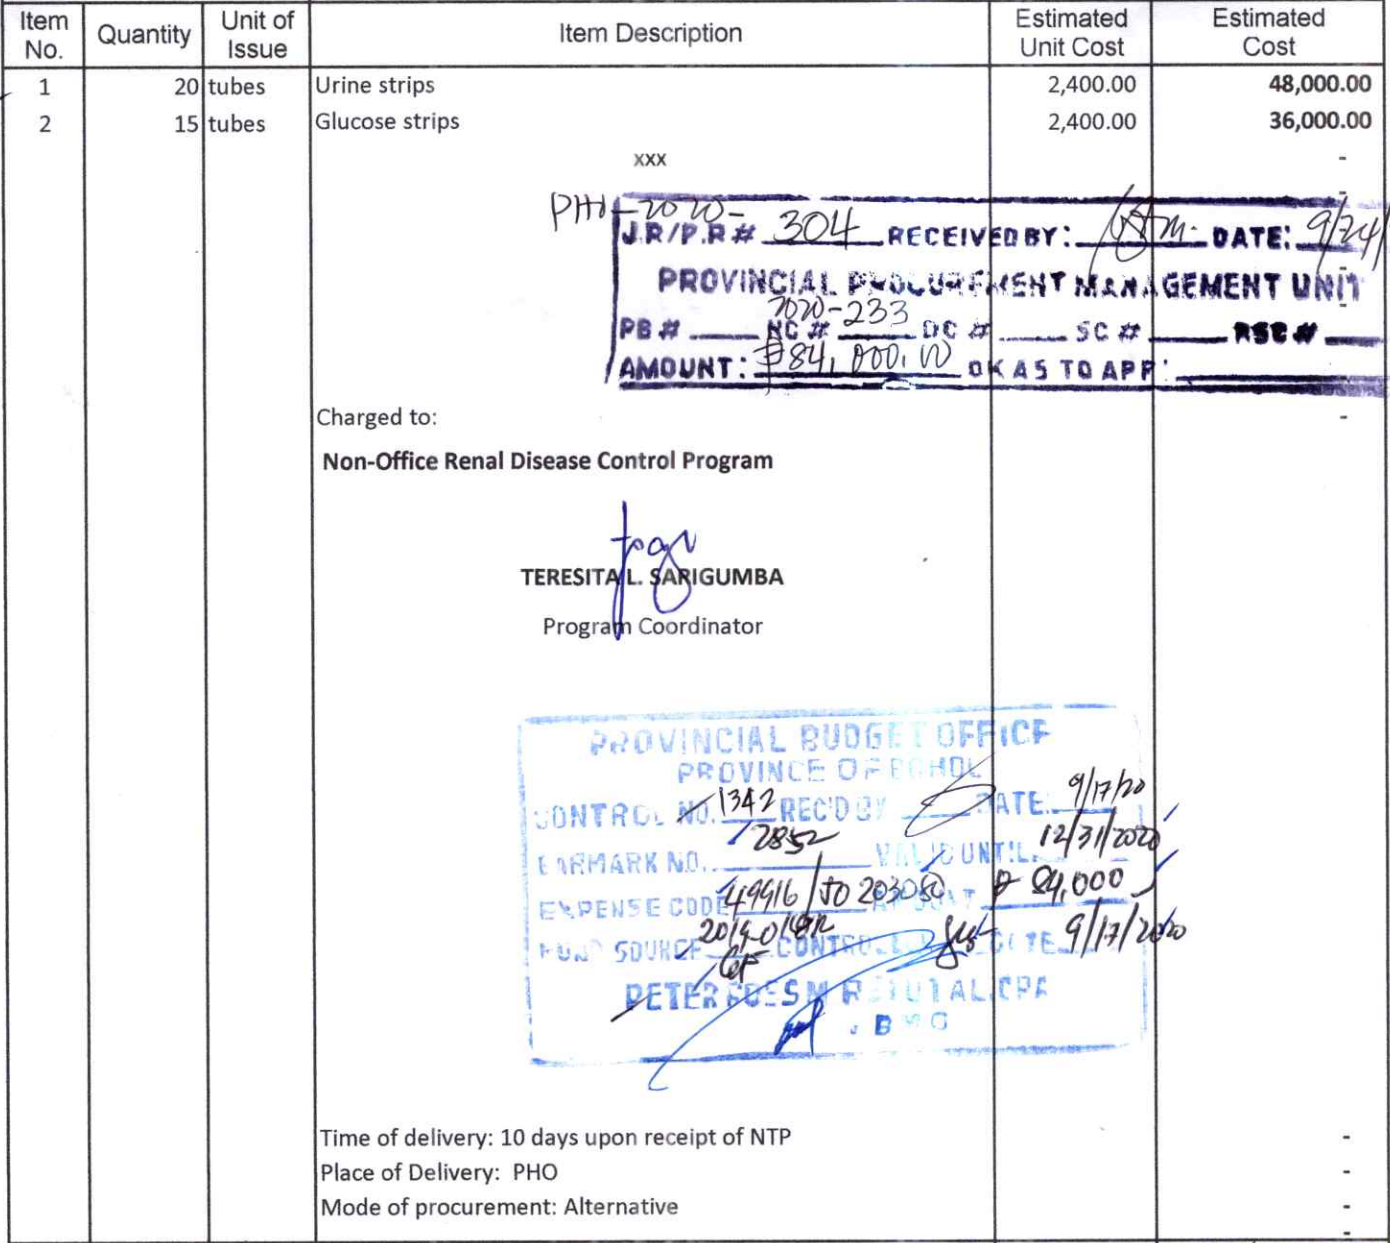 Item No. Quantity Unit of Issue Item Description Estimated Unit Cost Estimated Cost
1 20 tubes Urine strips 2,400.00 48,000.00
2 15 tubes Glucose strips 2,400.00 36,000.00
xxx -
PHO-2020-
J.R/P.R# 304 RECEIVED BY: DATE: 9/24/
PROVINCIAL PROCUREMENT MANAGEMENT UNIT
2020-233
PB # NC # DC # SC # RSC #
AMOUNT: ₱84,000.00 OK AS TO APP:
Charged to: -
Non-Office Renal Disease Control Program
TERESITA L. SARIGUMBA
Program Coordinator
PROVINCIAL BUDGET OFFICE
PROVINCE OF BOHOL
CONTROL NO. 1342 REC'D BY DATE: 9/17/20
EARMARK NO. 2852 VALID UNTIL 12/31/2020
EXPENSE CODE 49916 / AMOUNT ₱ 84,000
FUND SOURCE GF CONTROLLER DATE 9/17/2020
PETER CPA
Time of delivery: 10 days upon receipt of NTP -
Place of Delivery: PHO -
Mode of procurement: Alternative -
-